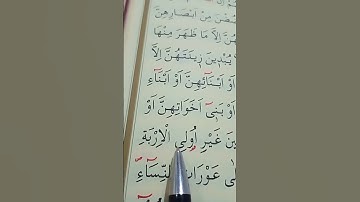 يَغْضُضْنَ مِنْ اَبْصَارِهِنَّ
هُنَّ اِلَّا مَا ظَهَرَ مِنْهَا
يُبْدِينَ زِينَتَهُنَّ اِلَّا
اَوْ اَبْنَٓائِهِنَّ اَوْ اَبْنَٓاءِ
اَوْ بَنٖٓى اَخَوَاتِهِنَّ اَوْ
غَيْرِ اُو۬لِى الْاِرْبَةِ
عَوْرَاتِ النِّسَٓاءِ